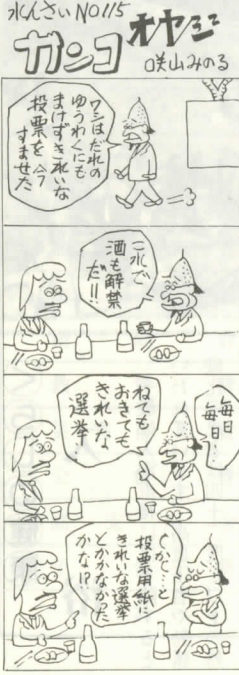 氷んさい NO115
ガンコオヤジ
咲山みのる
ワシはだれの
ゆうわくにも
まけずきれいな
投票を今
すませた
これで
酒も解禁
だ!!
毎日
毎日…
ねても
おきても
きれいな
選挙!
しかし…と
投票用紙に
きれいな選挙
とかかなかった
かな!?